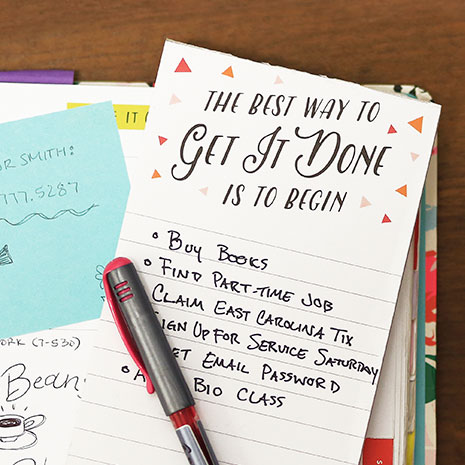 THE BEST WAY TO
GET IT DONE
IS TO BEGIN
• BUY BOOKS
• FIND PART-TIME JOB
CLAIM EAST CAROLINA TIX
SIGN UP FOR SERVICE SATURDAY
EMAIL PASSWORD
BIO CLASS
IT
SMITH:
777.5287
(7-530)
BEAN